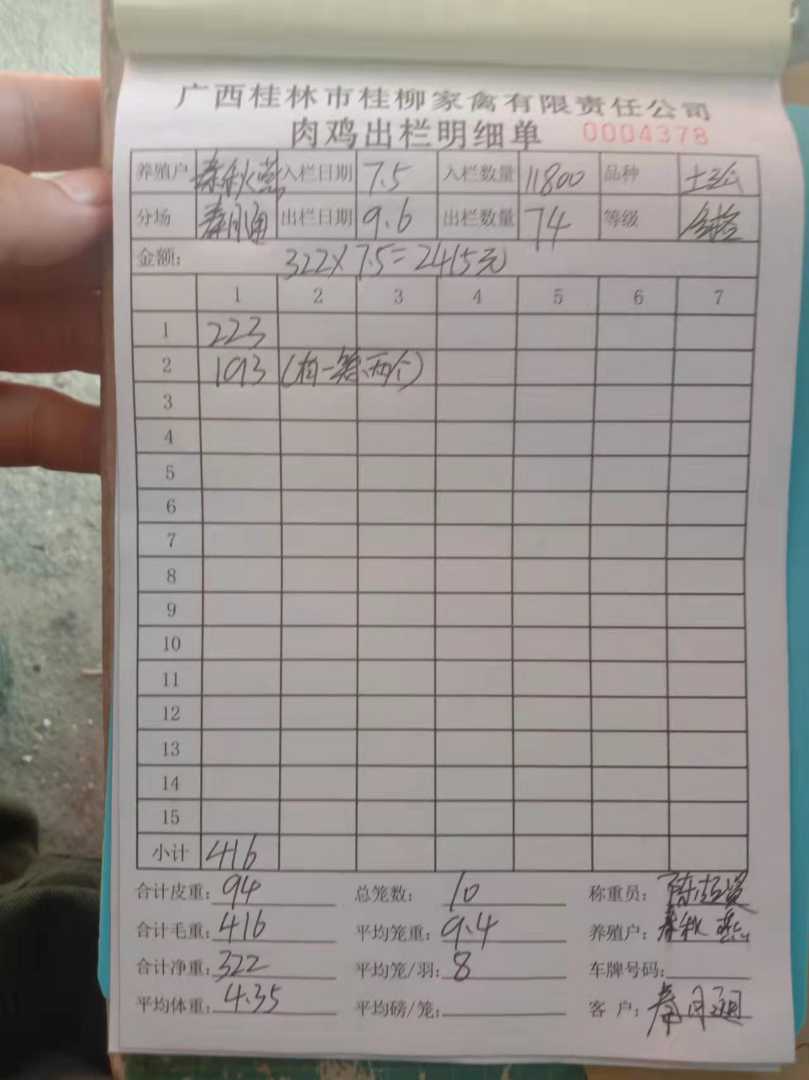 广西桂林市桂柳家禽有限责任公司
肉鸡出栏明细单 0004378
养殖户 秦秋燕 入栏日期 7.5 入栏数量 11800 品种
分场 出栏日期 9.6 出栏数量 74 等级
金额: 322×7.5=2415元
1 2 3 4 5 6 7
1 223
2 193 (有一笼两个)
3
4
5
6
7
8
9
10
11
12
13
14
15
小计 416
合计皮重: 94 总笼数: 10 称重员:
合计毛重: 416 平均笼重: 9.4 养殖户: 秦秋燕
合计净重: 322 平均笼/羽: 8 车牌号码:
平均体重: 4.35 平均磅/笼: 客 户: